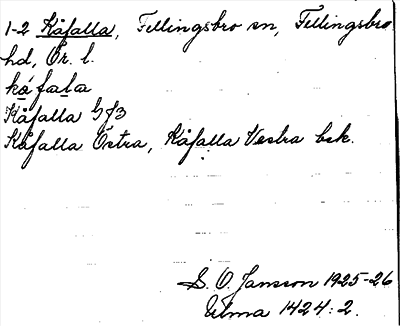 1-2 Kåfalla, Fellingsbro sn, Fellingsbro
hd, Ör. l.
kåfala
Kåfalla GJ3
Kåfalla Östra, Kåfalla Vestra bek.
S. O. Jansson 1925-26
Ulma 1424:2.